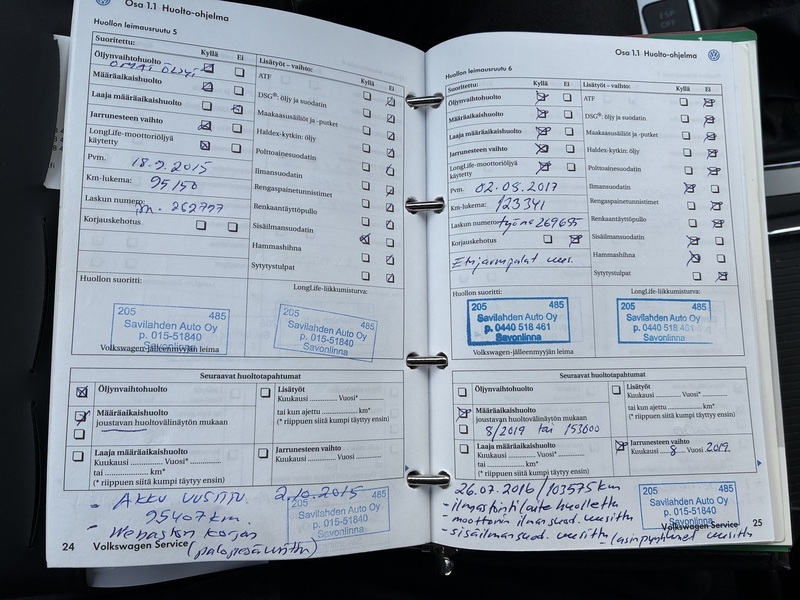 Osa 1.1 Huolto-ohjelma
Huollon leimausruutu 5
Suoritettu:
Kyllä Ei
Öljynvaihtohuolto
OMAT ÖLJYT
Määräaikaishuolto
Laaja määräaikaishuolto
Jarrunesteen vaihto
LongLife-moottoriöljyä
käytetty
Pvm. 18.9.2015
Km-lukema: 95150
Laskun numero:
262777
Korjauskehotus
Lisätyöt – vaihto:
Kyllä Ei
ATF
DSG®: öljy ja suodatin
Maakaasusäiliöt ja -putket
Haldex-kytkin: öljy
Polttoainesuodatin
Ilmansuodatin
Rengaspainetunnistimet
Renkaantäyttöpullo
Sisäilmansuodatin
Hammashihna
Sytytystulpat
Huollon suoritti:
LongLife-liikkumisturva:
205 485
Savilahden Auto Oy
p. 015-51840
Savonlinna
Volkswagen-jälleenmyyjän leima
205 485
Savilahden Auto Oy
p. 015-51840
Savonlinna
Seuraavat huoltotapahtumat
Öljynvaihtohuolto
Määräaikaishuolto
joustavan huoltovälinäytön mukaan
Laaja määräaikaishuolto
Kuukausi .......... Vuosi* ..........
tai .................... km*
(* riippuen siitä kumpi täyttyy ensin)
Lisätyöt
Kuukausi .......... Vuosi* ..........
tai kun ajettu .................... km*
(* riippuen siitä kumpi täyttyy ensin)
Jarrunesteen vaihto
Kuukausi .......... Vuosi ..........
- AKKU UUSITTU. 2.10.2015
95407km.
- Webaston korjaus
205 485
Savilahden Auto Oy
p. 015-51840
Savonlinna
24 Volkswagen Service
Osa 1.1 Huolto-ohjelma
Huollon leimausruutu 6
Suoritettu:
Kyllä Ei
Öljynvaihtohuolto
Määräaikaishuolto
Laaja määräaikaishuolto
Jarrunesteen vaihto
LongLife-moottoriöljyä
käytetty
Pvm. 02.08.2017
Km-lukema: 123341
Laskun numero: työno 269655
Korjauskehotus
Etujarrupalat uus.
Lisätyöt – vaihto:
Kyllä Ei
ATF
DSG®: öljy ja suodatin
Maakaasusäiliöt ja -putket
Haldex-kytkin: öljy
Polttoainesuodatin
Ilmansuodatin
Rengaspainetunnistimet
Renkaantäyttöpullo
Sisäilmansuodatin
Hammashihna
Sytytystulpat
Huollon suoritti:
LongLife-liikkumisturva:
205 485
Savilahden Auto Oy
p. 0440 518 461
Savonlinna
Volkswagen-jälleenmyyjän leima
205 485
Savilahden Auto Oy
p. 0440 518 461
Savonlinna
Seuraavat huoltotapahtumat
Öljynvaihtohuolto
Määräaikaishuolto
joustavan huoltovälinäytön mukaan
8/2019 tai 153000
Laaja määräaikaishuolto
Kuukausi .......... Vuosi* ..........
tai .................... km*
(* riippuen siitä kumpi täyttyy ensin)
Lisätyöt
Kuukausi .......... Vuosi* ..........
tai kun ajettu .................... km*
(* riippuen siitä kumpi täyttyy ensin)
Jarrunesteen vaihto
Kuukausi 8 Vuosi 2019
26.07.2016/103575km
- ilmastointilaite huollettu
- moottorin ilmansuod. uusittu
- sisäilmansuod. uusittu - lasinpyyhkimet uusittu
205 485
Savilahden Auto Oy
p. 015-51840
Savonlinna
Volkswagen Service 25